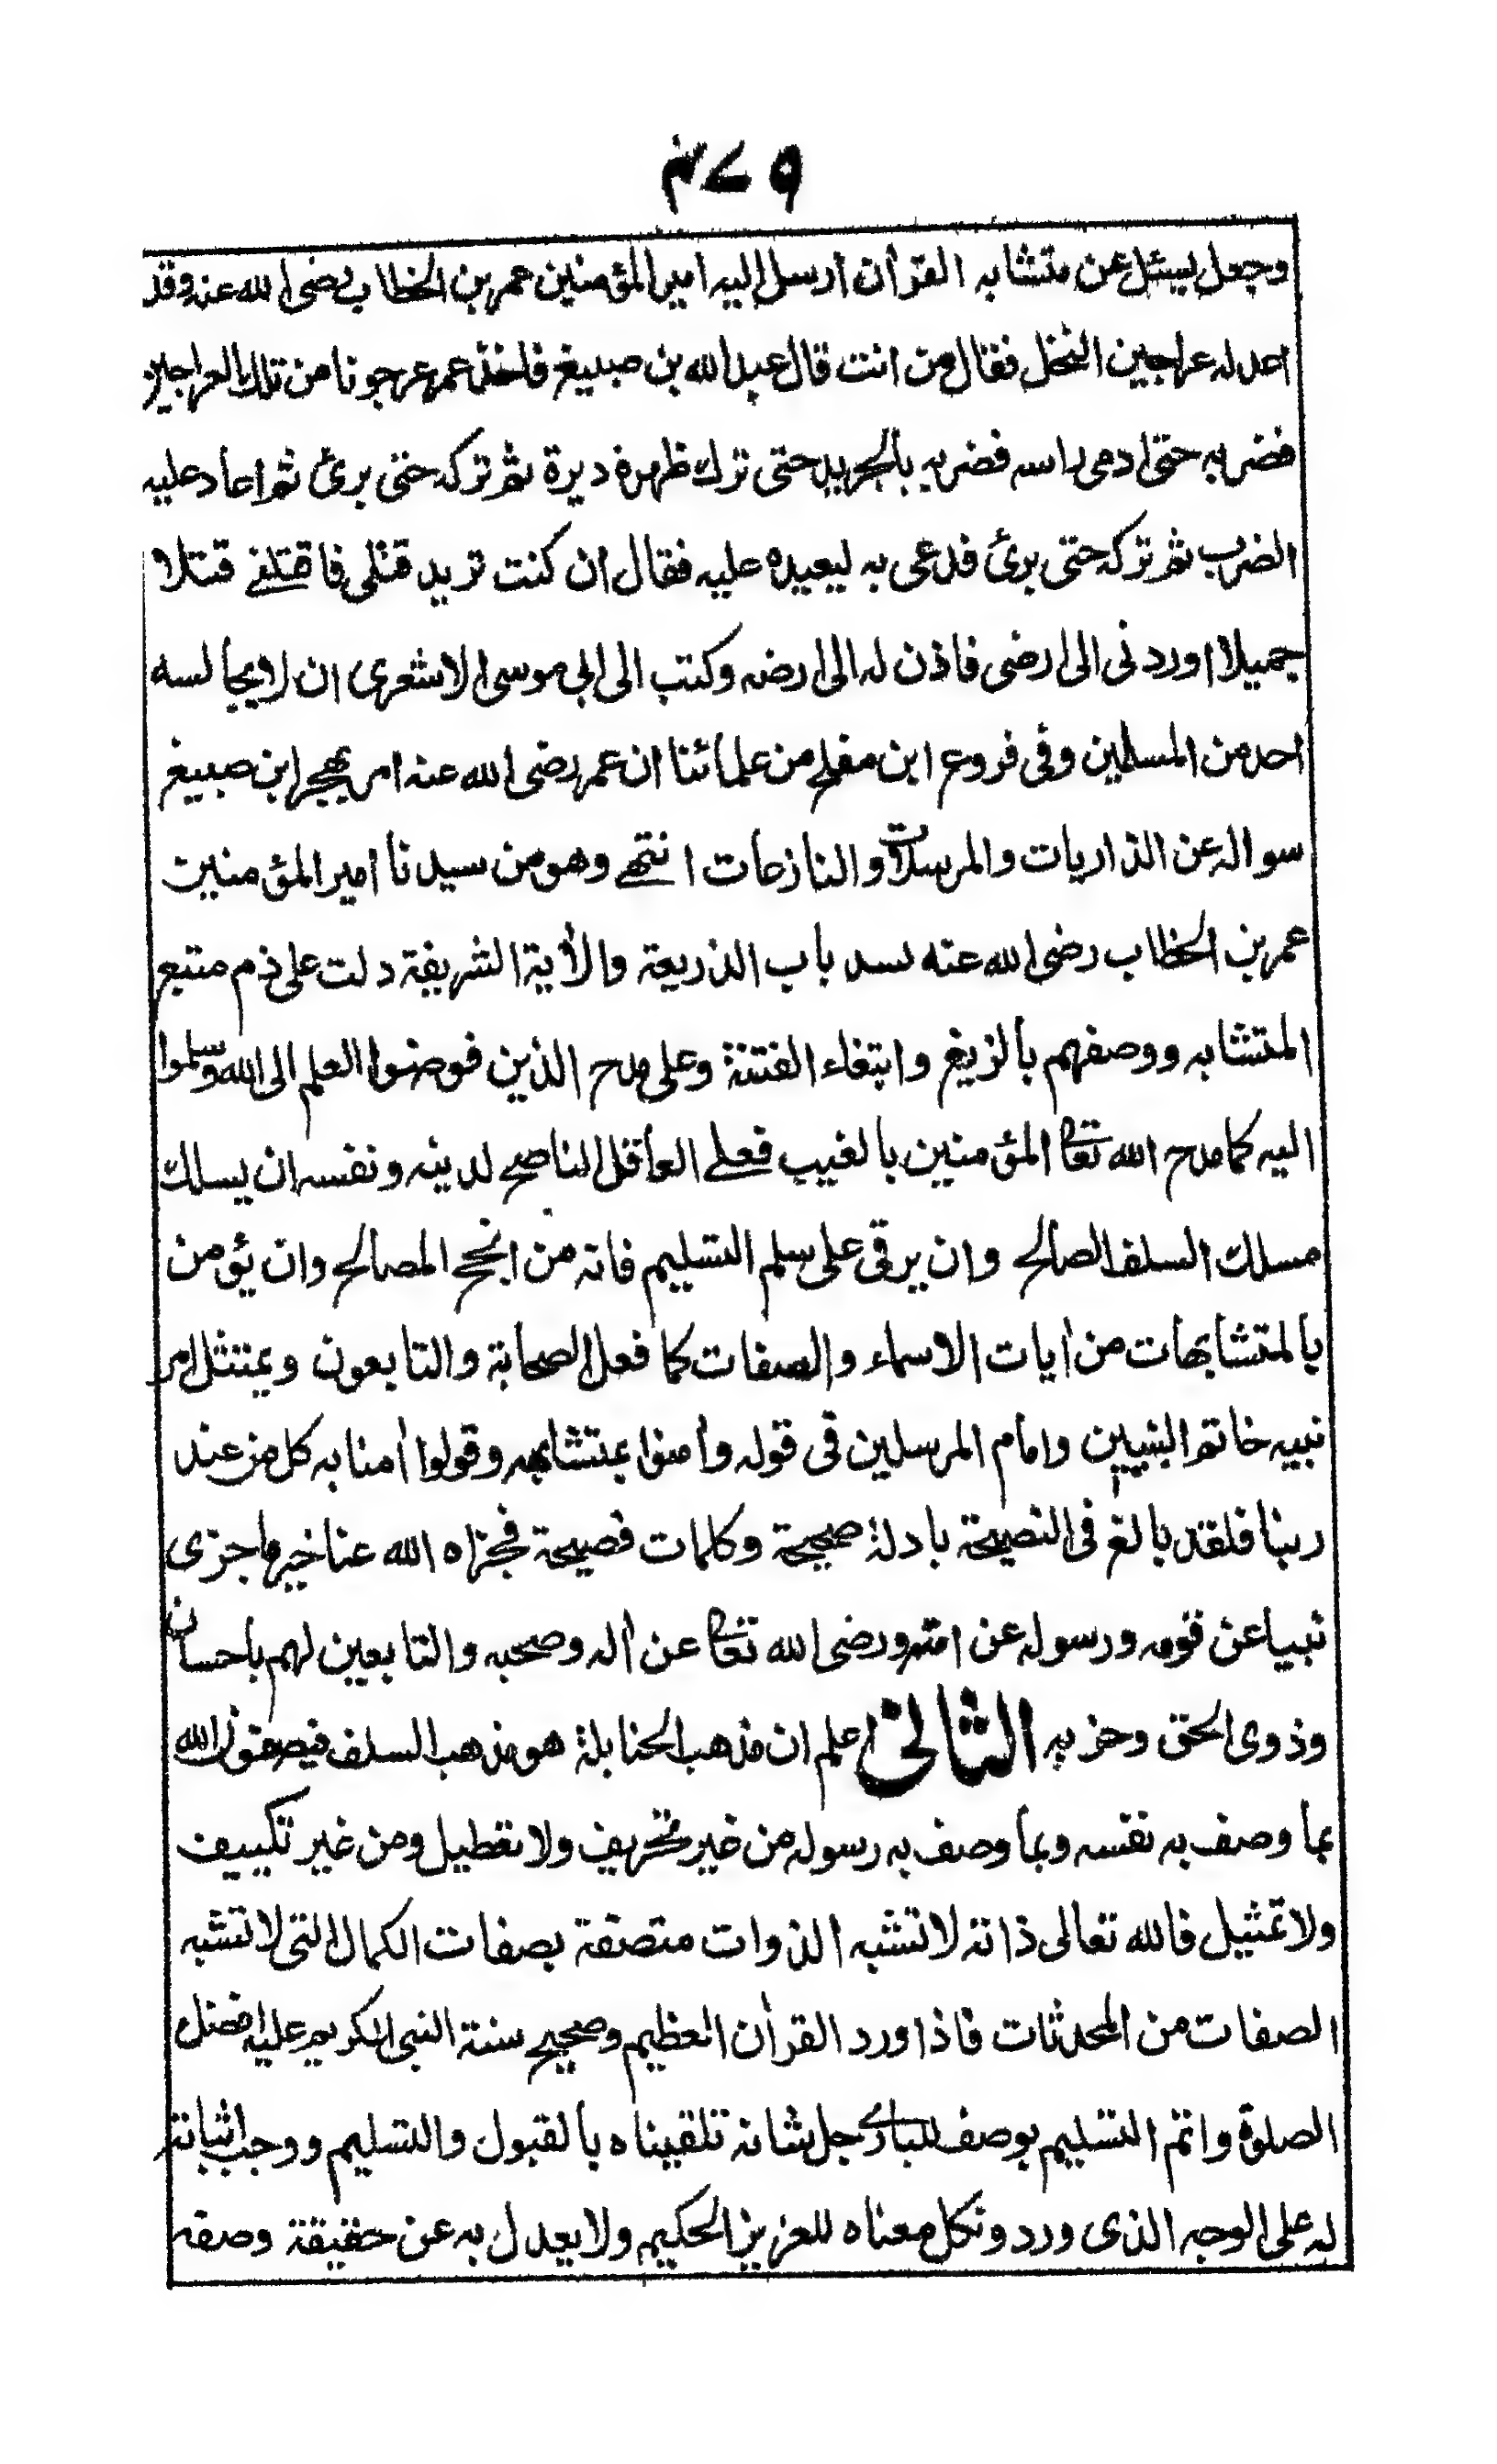 ٤٧٩
وجعل يسئل عن متشابه القرأن ارسل اليه امير المؤمنين عمر بن الخطاب رضى الله عنه وقد
اعد له عراجين النخل فقال من انت قال عبد الله بن صبيغ فاخذ عمر عرجونا من تلك العراجين
فضربه حتى ادمى راسه فضربه بالجريد حتى ترك ظهره ديرة ثم تركه حتى برئ ثم اعاد عليه
الضرب ثم تركه حتى برئ فدعى به ليعيده عليه فقال ان كنت تريد قتلى فاقتلنے قتلا
جميلا اوردنى الى ارضى فاذن له الى ارضه وكتب الى ابي موسى الاشعرى ان لا يجالسه
احد من المسلمين وفى فروع ابن مفلح من علمائنا ان عمر رضى الله عنه امر بهجر ابن صبيغ
سواله عن الذاريات والمرسلات والنازعات انتهے وهو من سيدنا امير المؤمنين
عمر بن الخطاب رضى الله عنه لسد باب الذريعة والأية الشريفة دلت على ذم متبع
المتشابه ووصفهم بالزيغ وابتغاء الفتنة وعلى مدح الذين فوضوا العلم الى الله وسلموا
اليه كما مدح الله تعالى المؤمنين بالغيب فعلے العاقل الناصح لدينه ونفسه ان يسلك
مسلك السلف الصالح وان يرقى على سلم التسليم فانه من انجح المصالح وان يؤمن
بالمتشابهات من أيات الاسماء والصفات كما فعل الصحابة والتابعون ويمتثل امر
نبيه خاتم النبيين وامام المرسلين فى قوله وأمنوا بمتشابهه وقولوا أمنا به كل من عند
ربنا فلقد بالغ فى النصيحة بادلة صحيحة وكلمات فصيحة فجزاه الله عنا خير ما جزى
نبيا عن قومه ورسوله عن امته ورضى الله تعالى عن أله وصحبه والتابعين لهم باحسان
وذوى الحق وحزبه الثانى اعلم ان مذهب الحنابلة هو مذهب السلف فيصفون الله
بما وصف به نفسه وبما وصف به رسوله من غير تحريف ولا تعطيل ومن غير تكييف
ولا تمثيل فالله تعالى ذاته لا تشبه الذوات متصفة بصفات الكمال التى لا تشبه
الصفات من المحدثات فاذا ورد القرأن العظيم وصحيح سنة النبى الكريم عليه افضل
الصلوة واتم التسليم بوصف للبارے جل شانه تلقيناه بالقبول والتسليم ووجب اثباته
له على الوجه الذى ورد ونكل معناه للعزيز الحكيم ولا يعدل به عن حقيقة وصفه